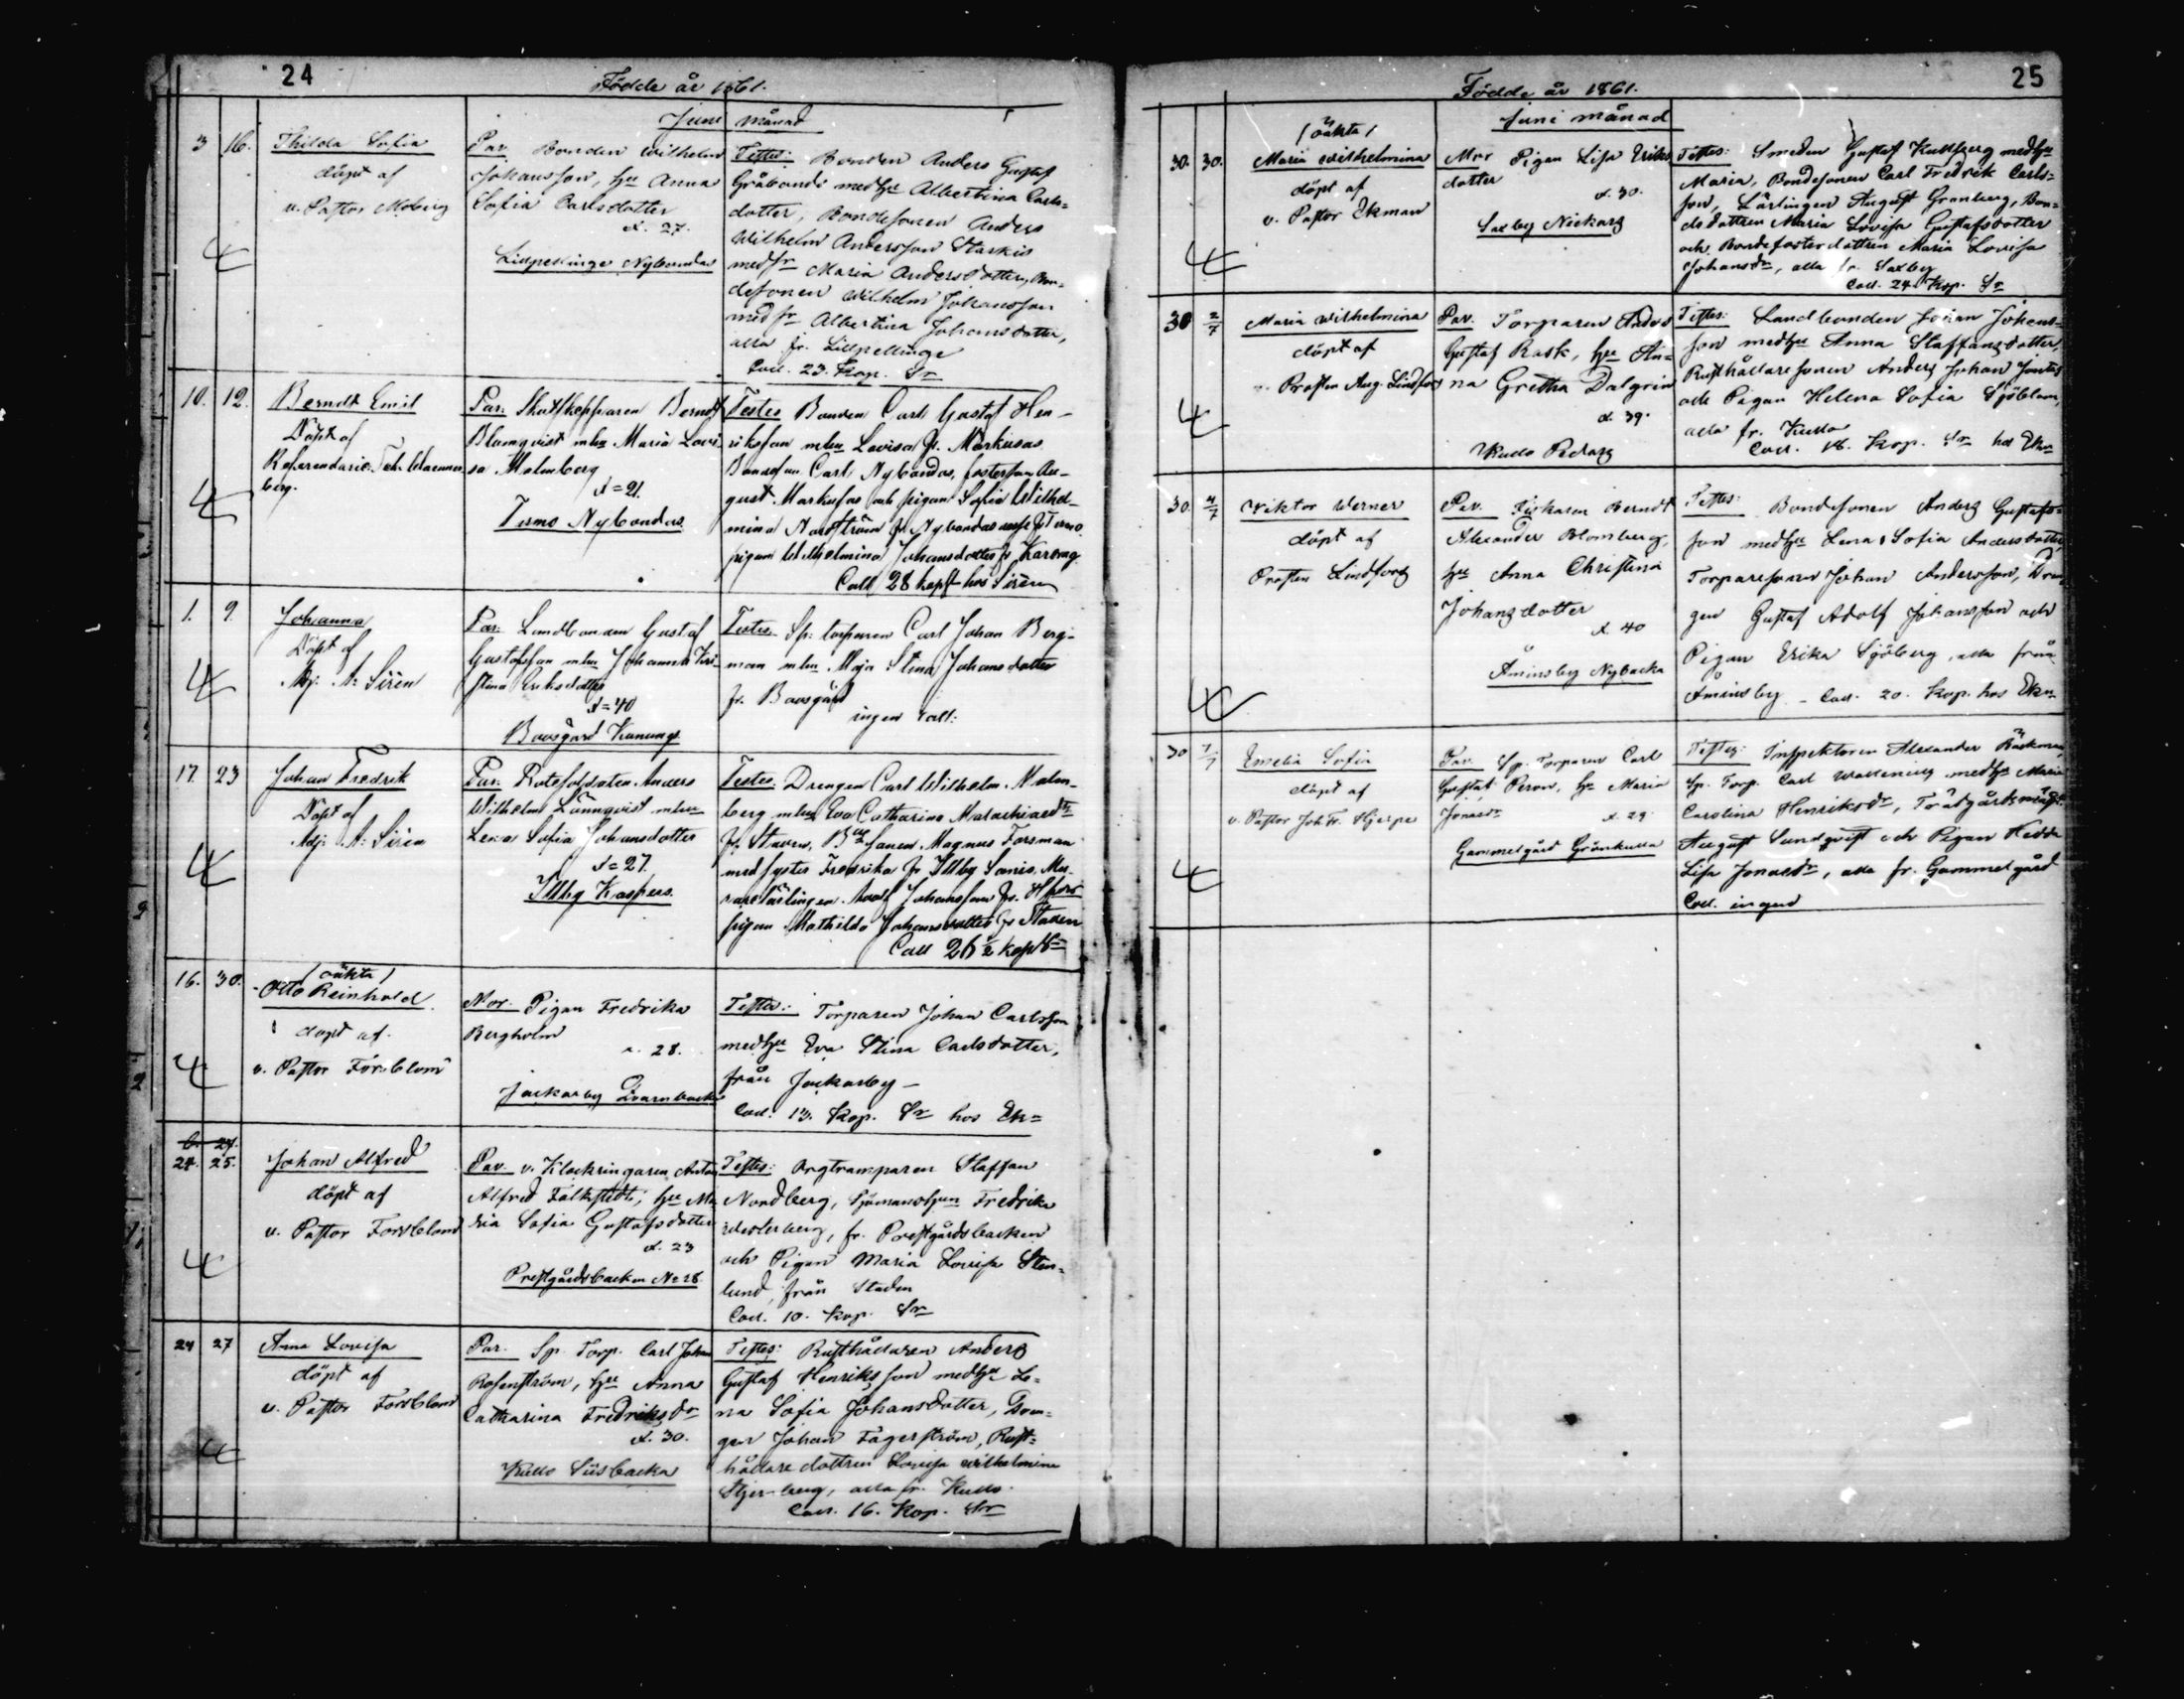 24
Födde år 1861.
Juni månad
3 16. Thilda Sofia
döpt af
v. Pastor Moberg
Par. Bonden Wilhelm
Johansson, hu Anna
Sofia Carlsdotter
d. 27.
Lillpellinge Nybondas
Testes: Bonden Anders Gustaf
Gråbonds med hu Albertina Carls=
dotter, Bondesonen Anders
Wilhelm Andersson Starkis
med fr Maria Andersdotter, Bon=
desonen Wilhelm Johansson
med fr Albertina Johansdotter,
alla fr. Lillpellinge
Coll. 23. Kop. Sr
10. 12. Berndt Emil
Döpt af
Referendarie Joh.
berg.
Par. Berndt
Blomqvist mhu Maria Lovi-
sa Malmberg
d = 21.
Tirmo Nybondas
Testes Bonden Carl Gustaf Hen-
rikson mhu Lovisa fr. Markusas
Bondeson Carl Nybondas, fosterson Au-
gust Markusas och pigan Sofia Wilhel-
mina Nordström fr Nybondas fr Tirmo
pigan Wilhelmina Johansdotter fr Kardrag
Coll 28 kop hos Sirén
1. 9. Johanna
Döpt af
Adj. A: Sirén
Par. Landbonden Gustaf
Gustafsson mhu Johanna Kri-
stina Eriksdotter
d = 40
Boasgård Kunungs
Testes. Sp: torparen Carl Johan Berg-
man mhu Maja Stina Johansdotter
fr. Boasgård
ingen coll.
17. 23 Johan Fredrik
Döpt af
Adj. A: Sirén
Par. Rotesoldaten Anders
Wilhelm Lönnqvist mhu
Lena Sofia Johansdotter
d = 27.
Illby Kaspers
Testes. Drengen Carl Wilhelm Malm-
berg mhu Eva Catharina Malachiaedr
fr. Staden, Magnus Forsman
med syster Fredrika fr Illby
Adolf Johansson fr. Hfors
pigan Mathilda Johansdotter fr Staden
Coll 26 ½ kop Sr
16. 30. (oäkta)
Otto Reinhold
döpt af
v. Pastor Forsblom
Mor: Pigan Fredrika
Bergholm
d. 28.
Jackarby Qvarnbacka
Testes: Torparen Johan Carlsson
med hu Eva Stina Carlsdotter,
från Jackarby -
Coll. 13. Kop. Sr hos Ek=
24. 25. Johan Alfred
döpt af
v. Pastor Forsblom
Par. v. Klockringaren Anton
Alfred Falkstedt, hu Ma-
ria Sofia Gustafsdotter
d. 23
Prestgårdsbacken No 28
Testes: Orgtramparen Staffan
Nordberg, Sjömanshun Fredrika
Westerberg, fr. Prestgårdsbacken
och Pigan Maria Lovisa Sten=
lund, från Staden
Coll. 10. Kop. Sr
24 27 Anna Lovisa
döpt af
v. Pastor Forsblom
Par. Sp. Torp. Carl Johan
Rosenström, hu Anna
Catharina Fredriksdr
d. 30.
Kullo Siisbacka
Testes: Rusthållaren Anders
Gustaf Henriksson med hu Le=
na Sofia Johansdotter, Dren=
gen Johan Fagerström, Rust=
hållare dottren Lovisa Wilhelmina
Stjernberg, alla fr. Kullo.
Coll. 16. Kop. Sr
25
Födde år 1861.
Juni månad
30. 30. (oäkta)
Maria Wilhelmina
döpt af
v. Pastor Ekman
Mor Pigan Lisa Eriks
dotter
d. 30.
Saxby Nickars
Testes: Smeden Gustaf Kullberg med hu
Maria, Bondesonen Carl Fredrik Carls=
son, Lärlingen August Granberg, Bon=
dedottren Maria Lovisa Gustafsdotter
och Bondefosterdottren Maria Lovisa
Johansdr, alla fr. Saxby
Coll. 24. Kop. Sr
30 2/7 Maria Wilhelmina
döpt af
Prosten Aug. Lindfors
Par. Torparen Anders
Gustaf Rask, hu An=
na Gretha Dalgrin
d. 39.
Kullo Pedars
Testes: Landbonden Johan Johans=
son med hu Anna Staffansdotter,
Rusthållaresonen Anders Johan
och Pigan Helena Sofia Sjöblom,
alla fr. Kullo
Coll. 18. Kop. Sr hos Ekn
30. 4/7 Viktor Werner
döpt af
Prosten Lindfors
Par. Fiskaren Berndt
Alexander Blomberg,
hu Anna Christina
Johansdotter
d. 40
Åminsby Nybacka
Testes: Bondesonen Anders Gustafs=
son med hu Lena Sofia Andersdotter
Torparesonen Johan Andersson, Dren
gen Gustaf Adolf Johansson och
Pigan Erika Sjöberg, alla från
Åminsby - Coll. 20. Kop. hos Ekn
30 7/7 Emelia Sofia
döpt af
v. Pastor Joh. Fr. Hjerpe
Par. Sp. Torparen Carl
Gustaf Peron, hu Maria
Jonaedr
d. 29.
Gammelgård Grönkulla
Testes: Inspektoren Alexander Bäckman,
Sp. Torp. Carl Wallenius med hu Maria
Carolina Henriksdr, Trädgårdsmäst.
August Sundqvist och Pigan Hedda
Lisa Jonaedr, alla fr. Gammelgård
Coll. ingend